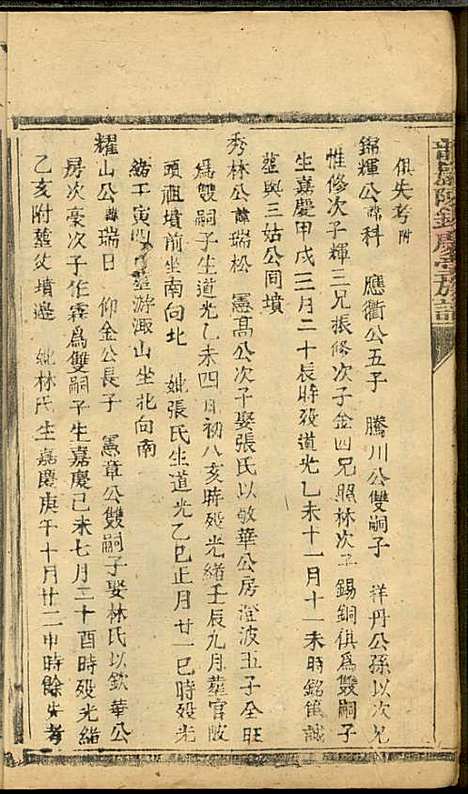 俱失考附
錦輝公諱科　應衢公五子　騰川公雙嗣子　祥丹公孫以次兄
惟修次子輝三兄振修次子金四兄照林次子錫銅俱為雙嗣子
生嘉慶甲戌三月二十辰時歿道光乙未十一月十一未時銘龍誠
塟與三姑公同墳
秀林公諱瑞松　憲高公次子娶張氏以敬華公房澄波五子全旺
為雙嗣子生道光乙未四月初八亥時歿光緒壬辰九月塟官陂
頭祖墳前坐南向北　妣張氏生道光乙巳正月廿一巳時歿光
緒壬寅四月塟游溈山坐北向南
耀山公諱瑞日　仰金公長子　憲章公雙嗣子娶林氏以欽華公
房次豪次子作霖為雙嗣子生嘉慶己未七月三十酉時歿光緒
乙亥附塟父墳邊　妣林氏生嘉慶庚午十月廿二申時餘失考
慶堂族譜